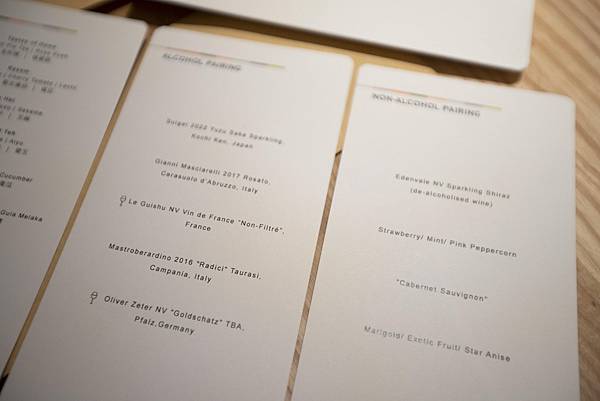 Taste of Home
Kueh
Cherry Tomato
Sesame
Cucumber
Gula Melaka
ALCOHOL PAIRING
Suigei 2022 Yuzu Sake Sparkling,
Kochi Ken, Japan
Gianni Masciarelli 2017 Rosato,
Carasuolo d'Abruzzo, Italy
Le Guishu NV Vin de France "Non-Filtré",
France
Mastroberardino 2016 "Radici" Taurasi,
Campania, Italy
Oliver Zeter NV "Goldschatz" TBA,
Pfalz,Germany
NON-ALCOHOL PAIRING
Edenvale NV Sparkling Shiraz
(de-alcoholised wine)
Strawberry/ Mint/ Pink Peppercorn
"Cabernet Sauvignon"
Marigold/ Exotic Fruit/ Star Anise